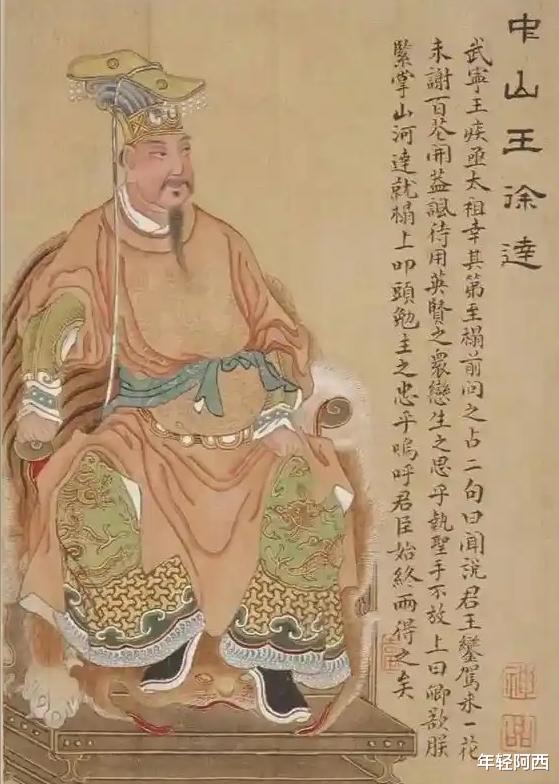 中山王徐達
武寧王疾亟太祖幸其第至榻前問之占二句曰聞說君王鑾駕來一花
未謝百花開蓋諷待用英賢之衆戀生之思乎執聖手不放上曰卿欲朕
緊掌山河達就榻上叩頭勉主之忠乎嗚呼君臣始終兩得之矣
神品
年轻阿西